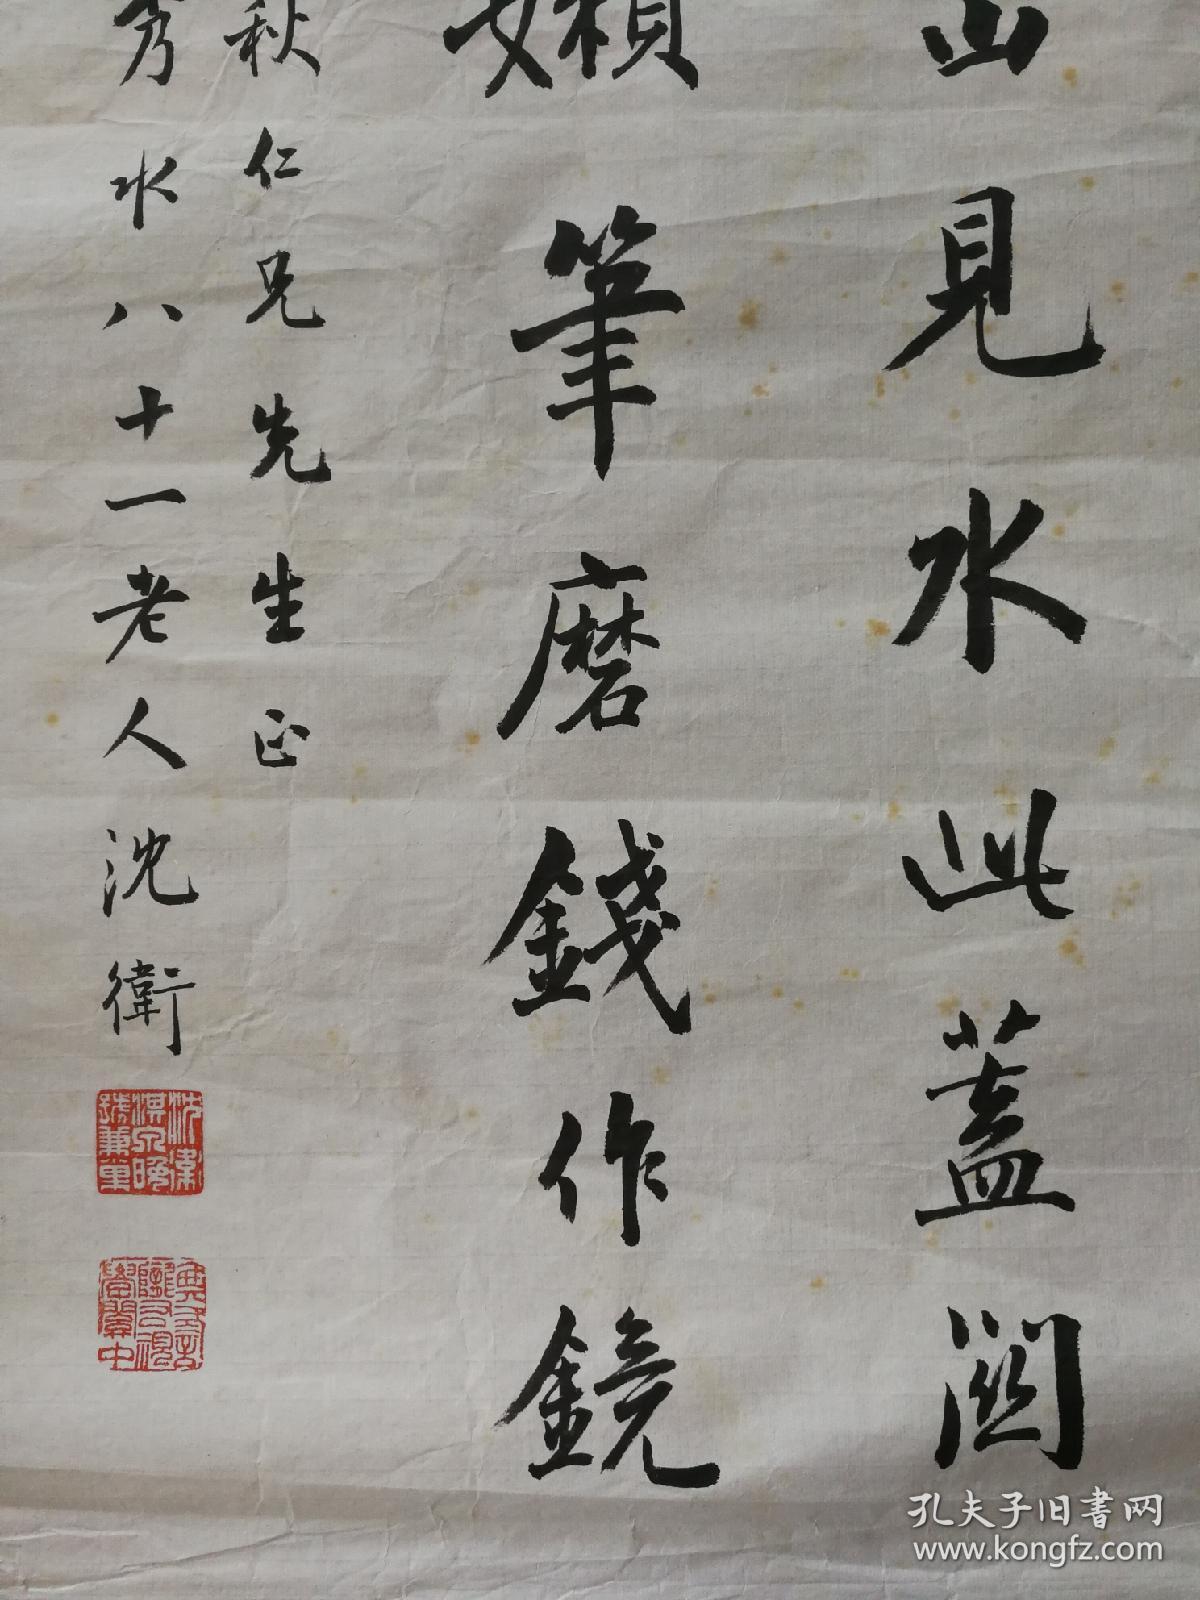 山見水此蓋闕
嬾筆磨錢作鏡
秋仁兄先生正
秀水八十一老人沈衛
孔夫子旧书网
www.kongfz.com